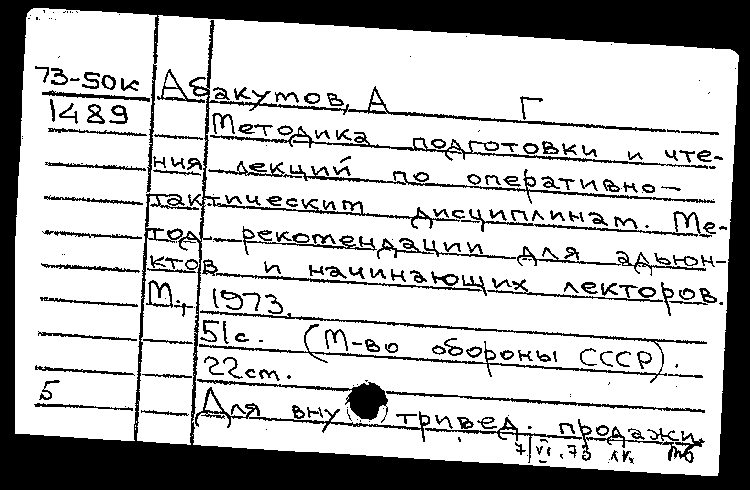 73-50к Абакумов, А Г
1489
Методика подготовки и чте-
ния лекций по оперативно-
тактическим дисциплинам. Ме-
тод рекомендации для адъюн-
ктов и начинающих лекторов.
М., 1973.
51с. (М-во обороны СССР).
22см.
5 Для вну тривед. продажи.
7/VI.73